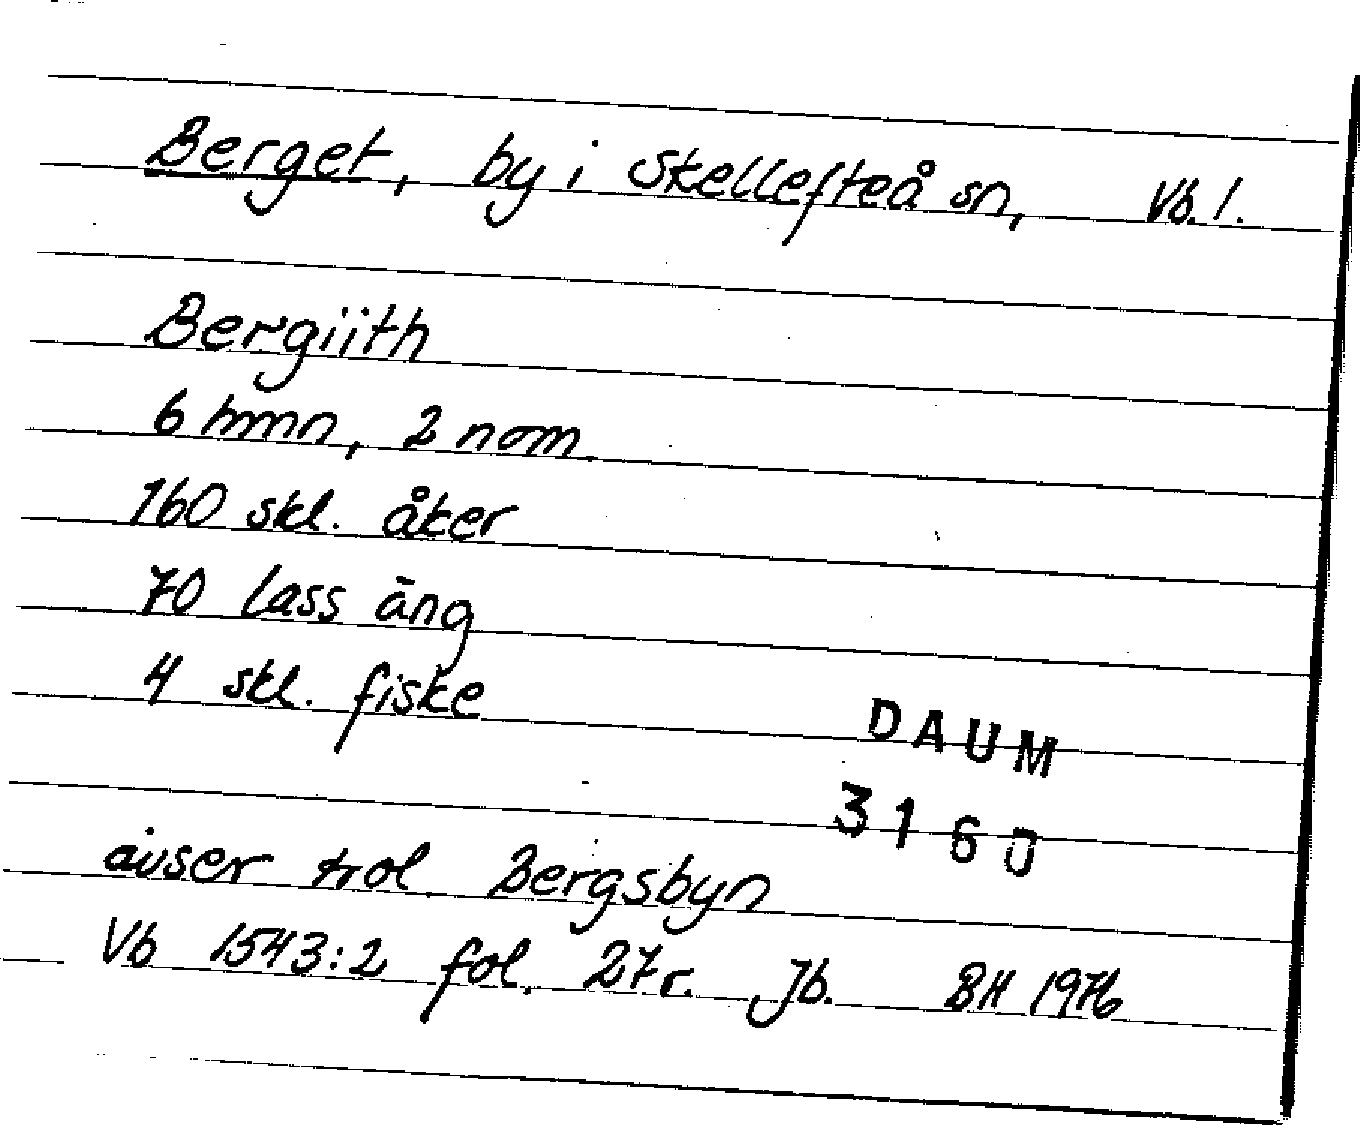 Berget, by i Skellefteå sn, Vb. l.
Bergiith
6 hmn, 2 nom
160 skl. åker
70 lass äng
4 skl. fiske
DAUM
3160
avser trol. Bergsbyn
Vb 1543:2 fol. 27r. Jb. BH 1976